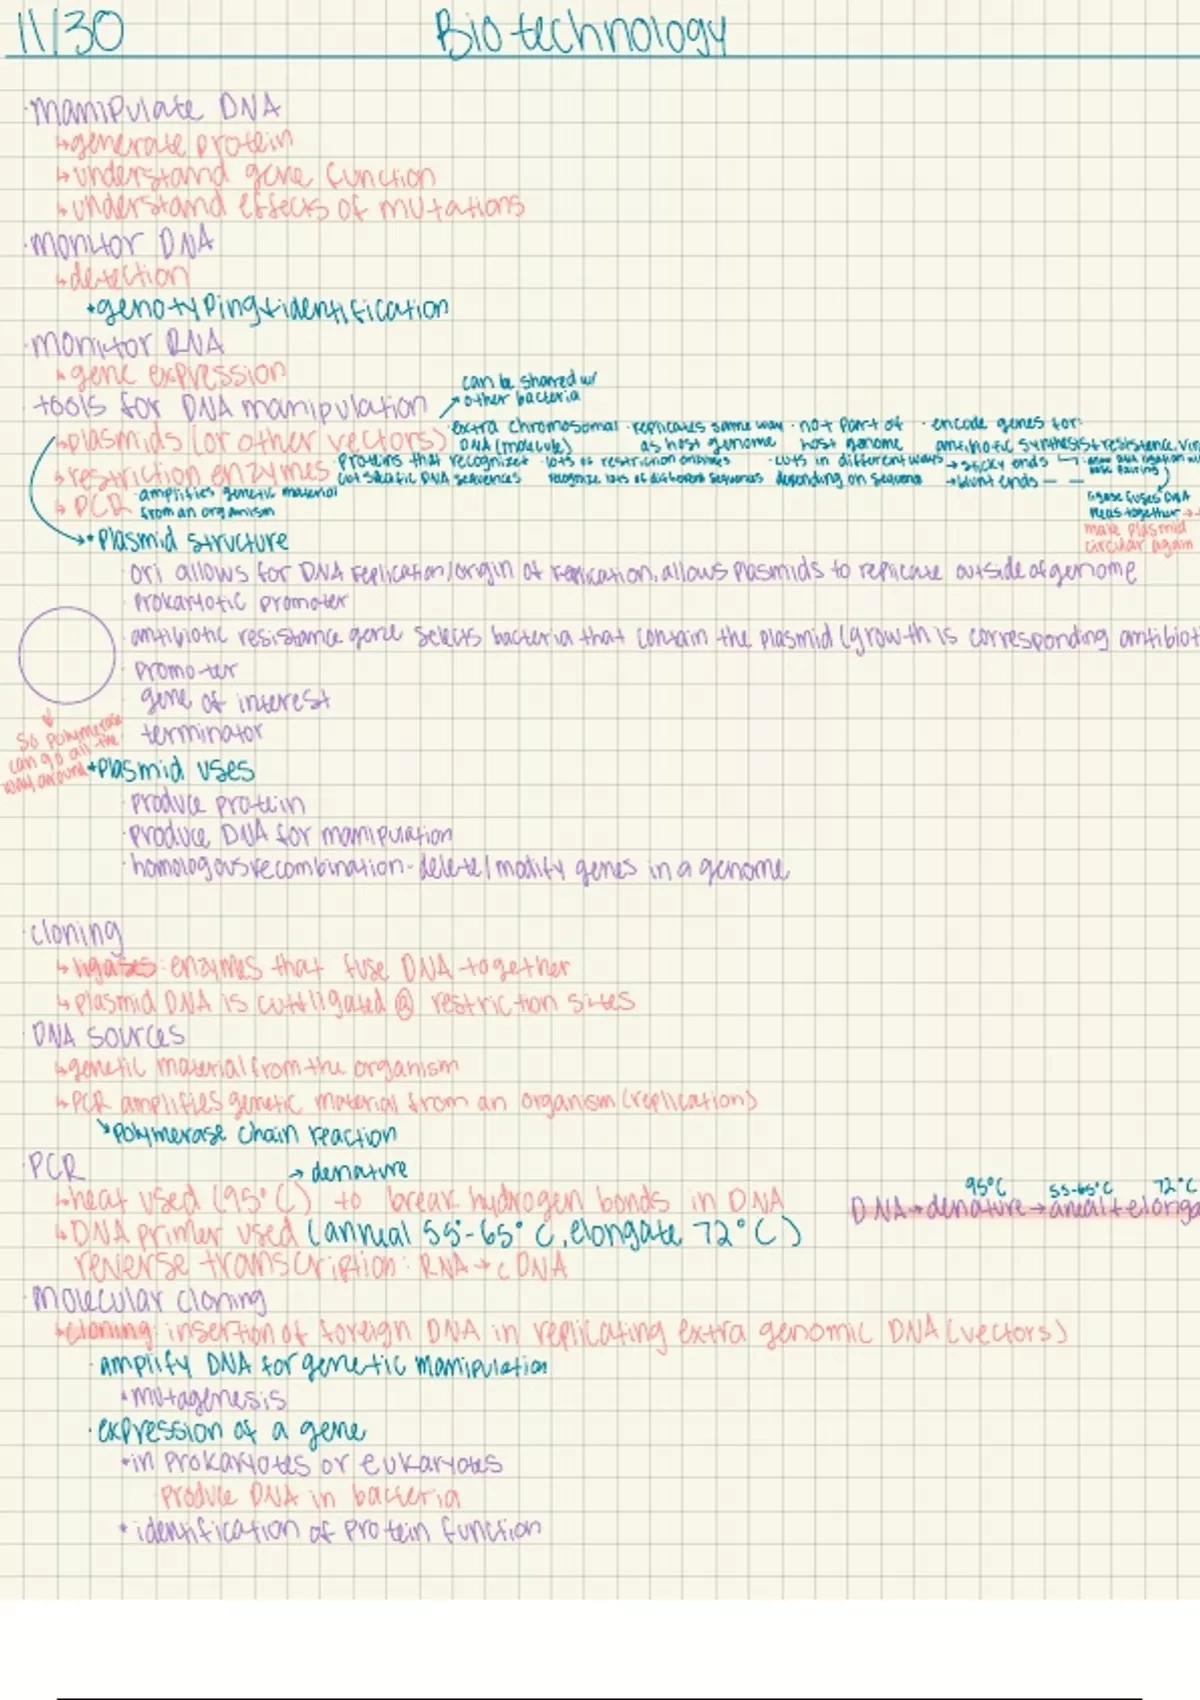 11/30 Biotechnology
·manipulate DNA
↳generate protein
↳understand gene function
↳understand effects of mutations
·monitor DNA
↳detection
•genotyping+identification
·monitor RNA
↳gene expression
can be shared w/
other bacteria
tools for DNA manipulation
↳plasmids (or other vectors)
·extra chromosomal DNA (molecule)
·replicates same way as host genome
·not part of host genome
·encode genes for:
antibiotic synthesis+resistence,
↳restriction enzymes
·proteins that recognize+
cut specific DNA sequences
·lots of restriction enzymes
recognize lots of different sequences
·cuts in different ways
depending on sequence
→sticky ends
→blunt ends
ligase fuses DNA
pieces together
make plasmid
circular again
↳PCR
·amplifies genetic material
from an organism
•Plasmid structure
ori allows for DNA replication/origin of replication, allows plasmids to replicate outside of genome
prokaryotic promoter
antibiotic resistance gene selects bacteria that contain the plasmid (growth is corresponding antibiot
promoter
gene of interest
terminator
so polymerase
can go all the
way around
•plasmid uses
·produce protein
·produce DNA for manipulation
·homologous recombination-delete/modify genes in a genome
·cloning
↳ligases: enzymes that fuse DNA together
↳plasmid DNA is cut+ligated @ restriction sites
·DNA sources
↳genetic material from the organism
↳PCR amplifies genetic material from an organism (replication)
↘polymerase chain reaction
·PCR
→denature
↳heat used (95°C) to break hydrogen bonds in DNA
↳DNA primer used (annual 55°-65°C, elongate 72°C)
95°C 55-65°C 72°C
DNA→denature→aneal+elonga
reverse transcription: RNA→cDNA
·molecular cloning
↳cloning: insertion of foreign DNA in replicating extra genomic DNA (vectors)
·amplify DNA for genetic manipulation
•mutagenesis
·expression of a gene
•in prokaryotes or eukaryotes
produce DNA in bacteria
•identification of protein function